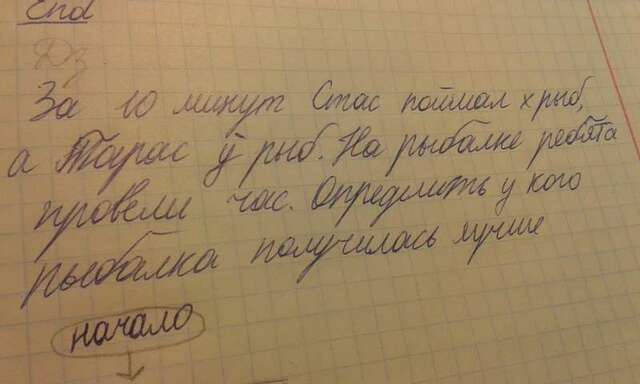 End
Дз
За 10 минут Стас поймал x рыб,
а Тарас y рыб. На рыбалке ребята
провели час. Определить у кого
рыбалка получилась лучше
начало